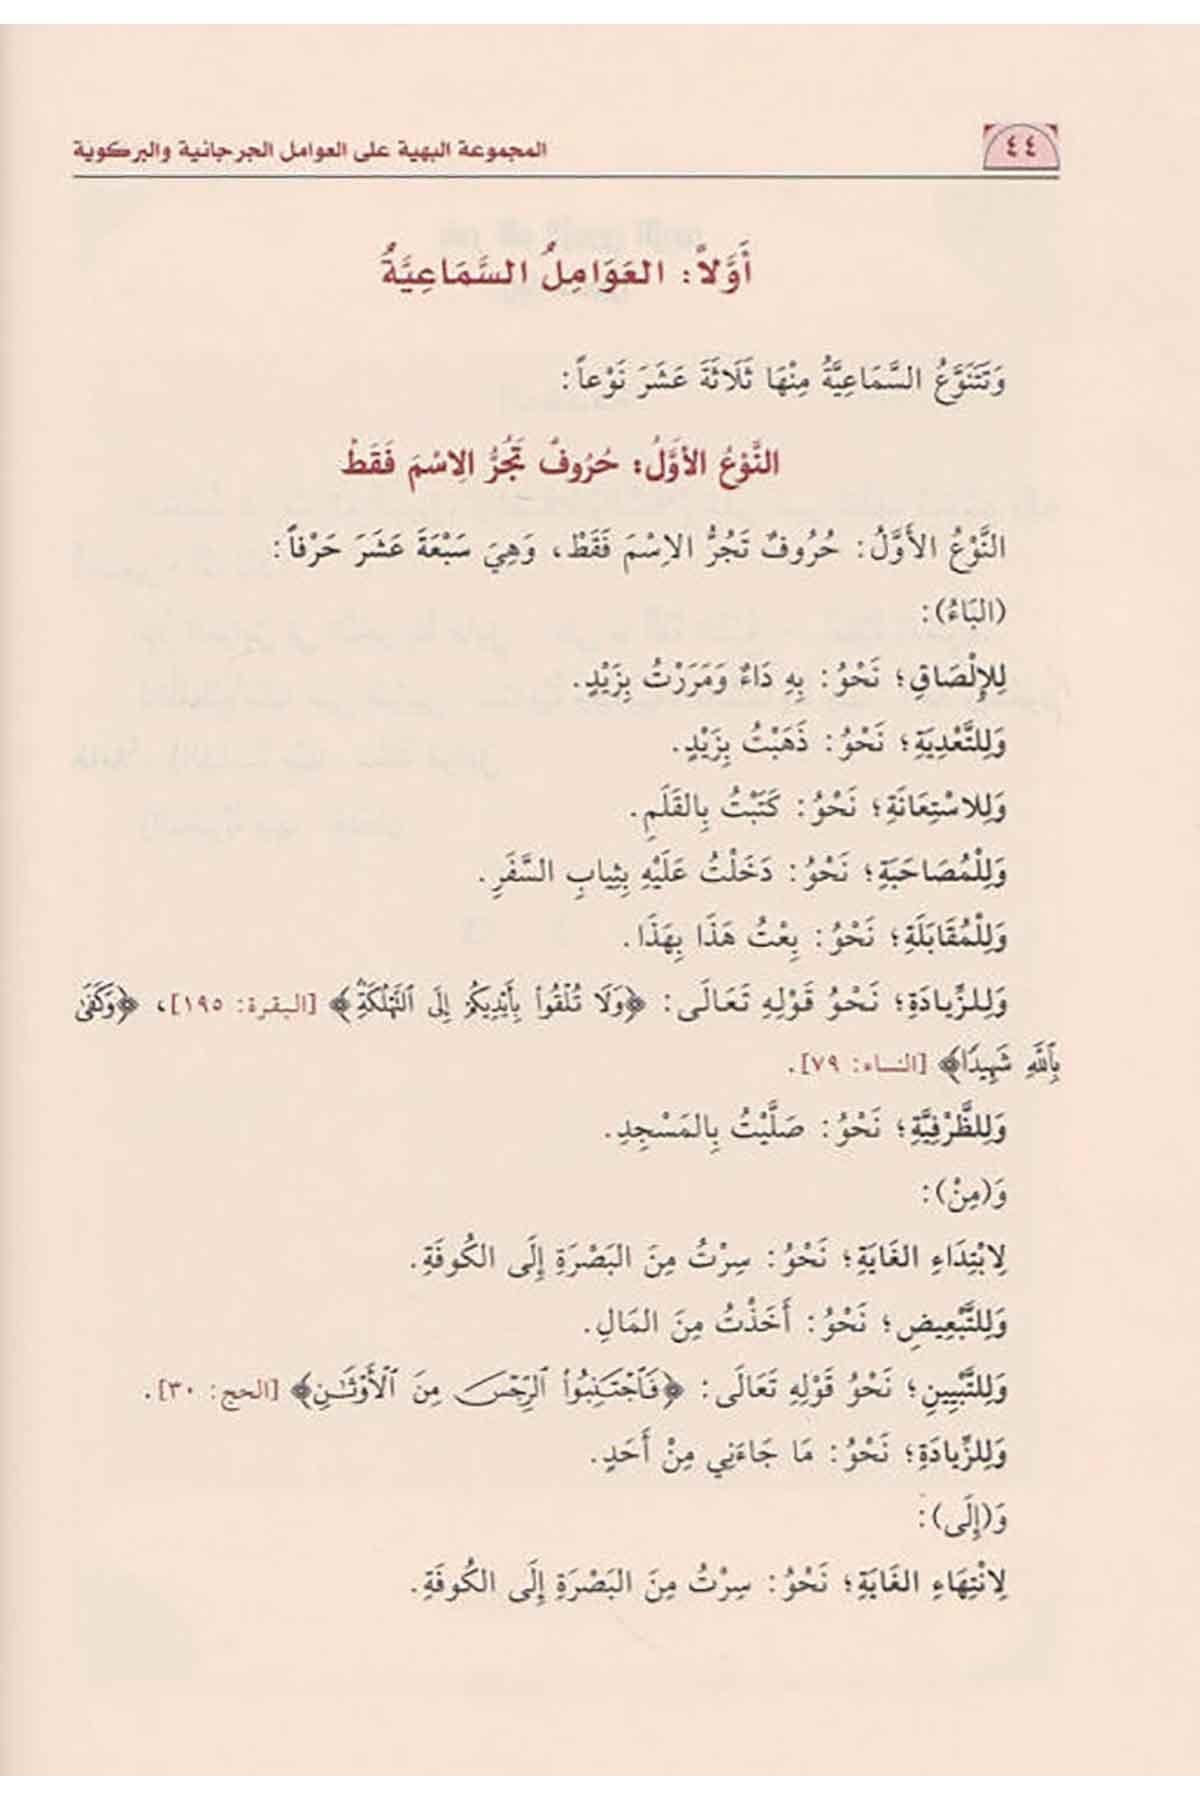 ٤٤
المجموعة البهية على العوامل الجرجانية والبركوية
أَوَّلاً: العَوَامِلُ السَّمَاعِيَّةُ
وَتَتَنَوَّعُ السَّمَاعِيَّةُ مِنْهَا ثَلَاثَةَ عَشَرَ نَوْعاً:
النَّوْعُ الأَوَّلُ: حُرُوفٌ تَجُرُّ الِاسْمَ فَقَطْ
النَّوْعُ الأَوَّلُ: حُرُوفٌ تَجُرُّ الِاسْمَ فَقَطْ، وَهِيَ سَبْعَةَ عَشَرَ حَرْفاً:
(البَاءُ):
لِلإِلْصَاقِ؛ نَحْوُ: بِهِ دَاءٌ وَمَرَرْتُ بِزَيْدٍ.
وَلِلتَّعْدِيَةِ؛ نَحْوُ: ذَهَبْتُ بِزَيْدٍ.
وَلِلاسْتِعَانَةِ؛ نَحْوُ: كَتَبْتُ بِالقَلَمِ.
وَلِلْمُصَاحَبَةِ؛ نَحْوُ: دَخَلْتُ عَلَيْهِ بِثِيابِ السَّفَرِ.
وَلِلْمُقَابَلَةِ؛ نَحْوُ: بِعْتُ هَذَا بِهَذَا.
وَلِلزِّيادَةِ؛ نَحْوُ قَوْلِهِ تَعَالَى: ﴿وَلَا تُلْقُوا۟ بِأَيْدِيكُمْ إِلَى ٱلتَّهْلُكَةِ﴾ [البقرة: ١٩٥]، ﴿وَكَفَىٰ
بِٱللَّهِ شَهِيدًا﴾ [النساء: ٧٩].
وَلِلظَّرْفِيَّةِ؛ نَحْوُ: صَلَّيْتُ بِالمَسْجِدِ.
وَ(مِنْ):
لِابْتِدَاءِ الغَايَةِ؛ نَحْوُ: سِرْتُ مِنَ البَصْرَةِ إِلَى الكُوفَةِ.
وَلِلتَّبْعِيضِ؛ نَحْوُ: أَخَذْتُ مِنَ المَالِ.
وَلِلتَّبْيِينِ؛ نَحْوُ قَوْلِهِ تَعَالَى: ﴿فَٱجْتَنِبُوا۟ ٱلرِّجْسَ مِنَ ٱلْأَوْثَـٰنِ﴾ [الحج: ٣٠].
وَلِلزِّيادَةِ؛ نَحْوُ: مَا جَاءَنِي مِنْ أَحَدٍ.
وَ(إِلَى):
لِانْتِهَاءِ الغَايَةِ؛ نَحْوُ: سِرْتُ مِنَ البَصْرَةِ إِلَى الكُوفَةِ.